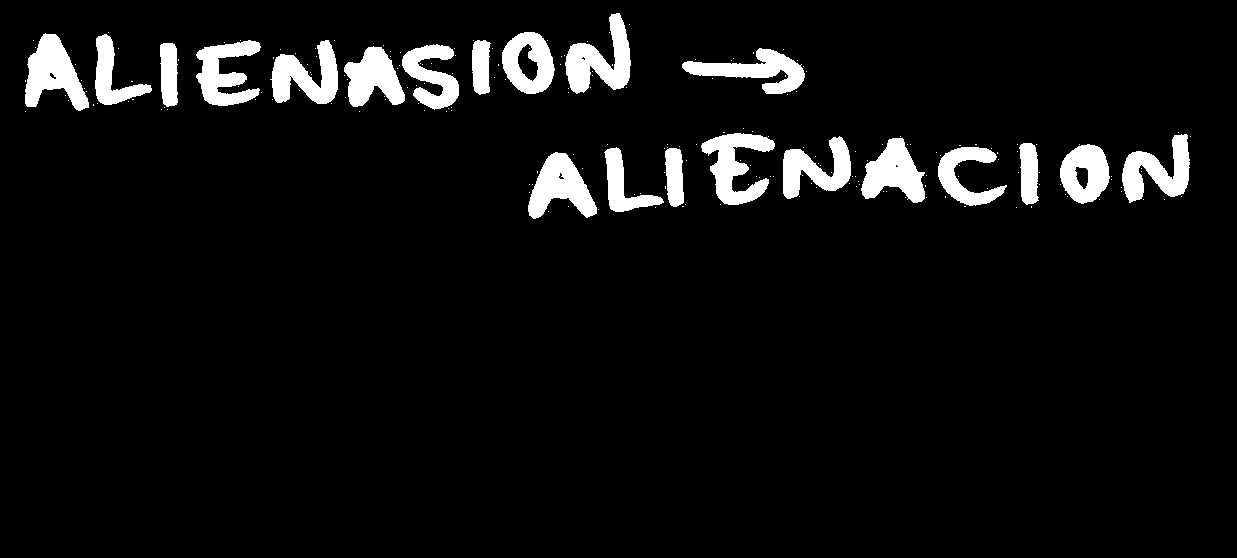 ALIENASION →
ALIENACION